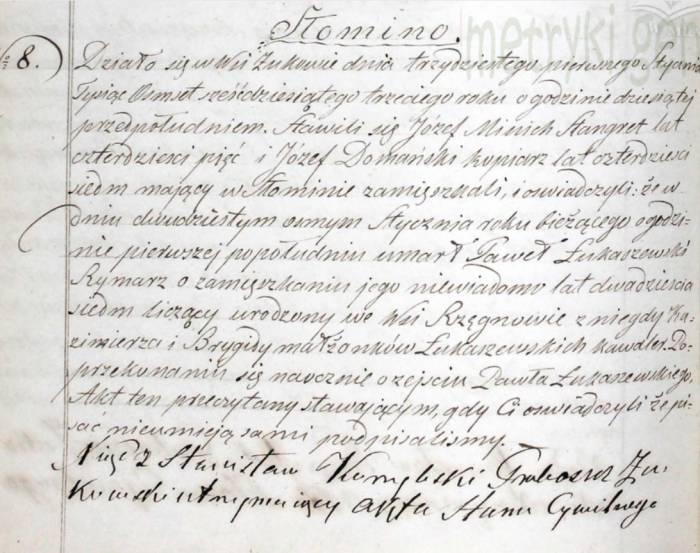 Słomino.
8.) Działo się w Wsi Żukowie dnia trzydziestego pierwszego Stycznia
Tysiąc Osmset sześćdziesiątego trzeciego roku o godzinie dziesiątej
przedpołudniem. Stawili się Józef Minich Stangret lat
czterdzieści pięć i Józef Domański kopiarz lat czterdzieści
siedm mający w Słominie zamięszkali, i oswiadczyli: że w
dniu dwudziestym osmym Stycznia roku bieżącego o godzi-
nie pierwszej popołudniu umarł Paweł Łukaszewski
Rymarz o zamięszkaniu jego niewiadomo lat dwadzieścia
siedm liczący urodzony we Wsi Rzęgnowie z niegdy Ka-
zimierza i Brygidy małżonków Łukaszewskich kawaler. Po
przekonaniu się naocznie o zejściu Pawła Łukaszewskiego,
Akt ten przeczytany stawającym, gdy Ci oswiadczyli że pi-
sać nieumieją sami podpisalismy.
Xiądz Stanisław Proboszcz Żu-
kowski utrzymujący Akta Stanu Cywilnego
metryki.gen